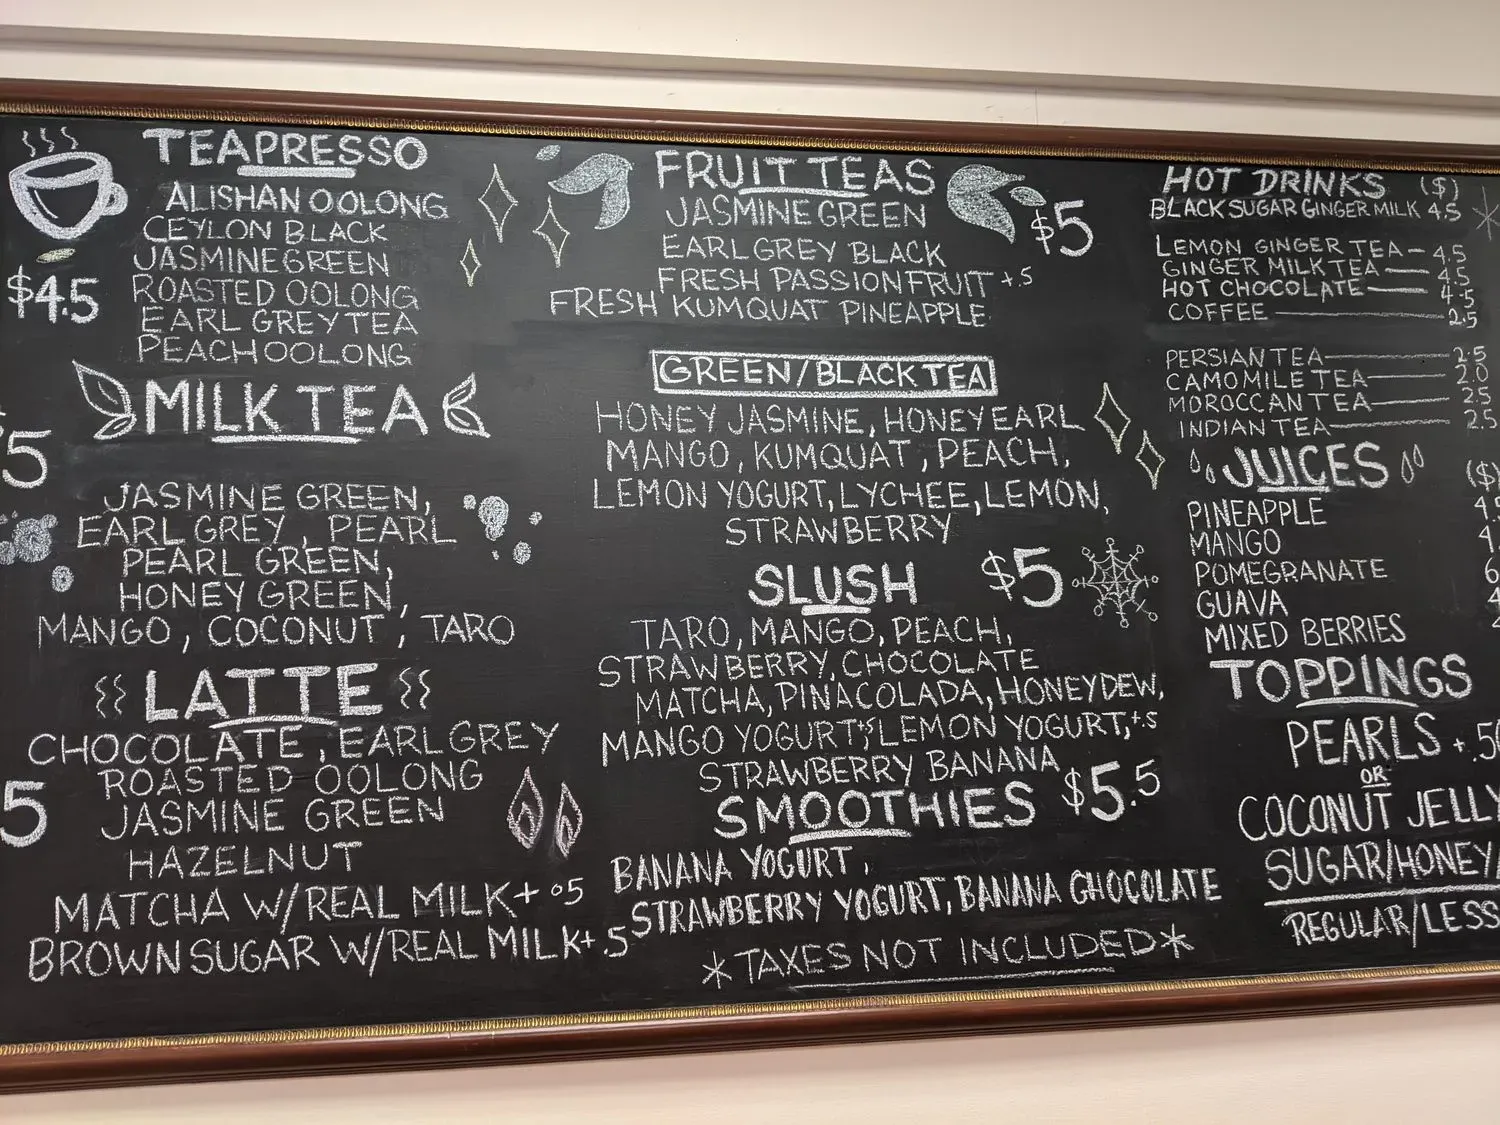 TEAPRESSO
ALISHAN OOLONG
CEYLON BLACK
JASMINE GREEN
$4.5
ROASTED OOLONG
EARL GREY TEA
PEACH OOLONG
MILK TEA
5
JASMINE GREEN,
EARL GREY, PEARL
PEARL GREEN,
HONEY GREEN,
MANGO, COCONUT, TARO
LATTE
CHOCOLATE, EARL GREY
ROASTED OOLONG
5
JASMINE GREEN
HAZELNUT
MATCHA W/REAL MILK+ .5
BROWN SUGAR W/REAL MILK+.5
FRUIT TEAS
$5
JASMINE GREEN
EARL GREY BLACK
FRESH PASSIONFRUIT +.5
FRESH KUMQUAT PINEAPPLE
GREEN/BLACK TEA
HONEY JASMINE, HONEY EARL
MANGO, KUMQUAT, PEACH,
LEMON YOGURT, LYCHEE, LEMON,
STRAWBERRY
SLUSH $5
TARO, MANGO, PEACH,
STRAWBERRY, CHOCOLATE
MATCHA, PINACOLADA, HONEYDEW,
MANGO YOGURT+.5, LEMON YOGURT,+.5
STRAWBERRY BANANA
SMOOTHIES $5.5
BANANA YOGURT,
STRAWBERRY YOGURT, BANANA CHOCOLATE
*TAXES NOT INCLUDED*
HOT DRINKS ($)
BLACK SUGAR GINGER MILK 4.5
LEMON GINGER TEA 4.5
GINGER MILK TEA 4.5
HOT CHOCOLATE 4.5
COFFEE 2.5
PERSIAN TEA 2.5
CAMOMILE TEA 2.0
MOROCCAN TEA 2.5
INDIAN TEA 2.5
JUICES ($)
PINEAPPLE
MANGO
POMEGRANATE
GUAVA
MIXED BERRIES
TOPPINGS
PEARLS +.50
OR
COCONUT JELLY
SUGAR/HONEY/
REGULAR/LESS